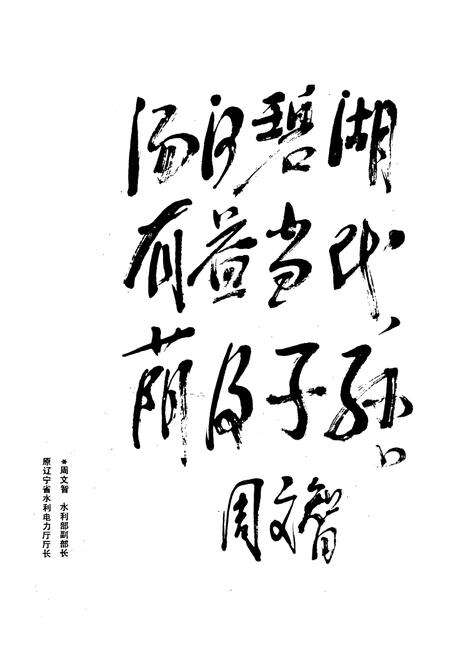 汤河碧湖
有益当代，
荫及子孙。
周文智
*周文智 水利部副部长
原辽宁省水利电力厅厅长